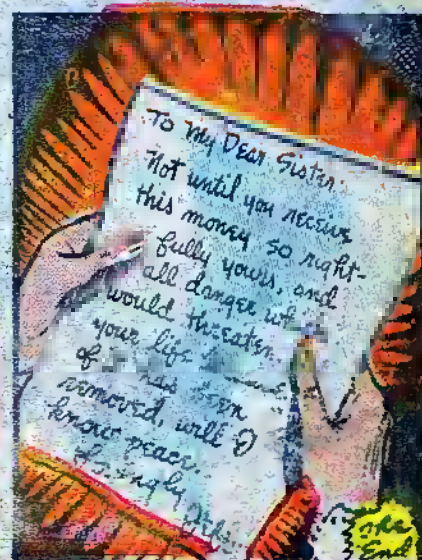 To My Dear Sister:
Not until you receive
this money so right-
fully yours, and
all danger
would threaten
your life
of it has been
removed, will I
know peace.
The
End